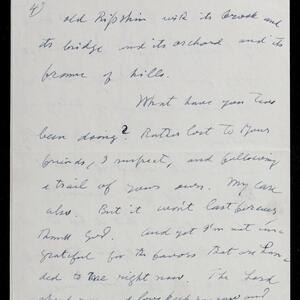 4)
old Ripshin with its brook and
its bridge and its orchard and its
frame of hills.
What have you two
been doing? Rather lost to your
friends, I suspect, and following
a trail of your own. My case
also. But it won't last forever
thank God. and yet I'm not un-
grateful for the that are
ded to me right now. The Lord
and